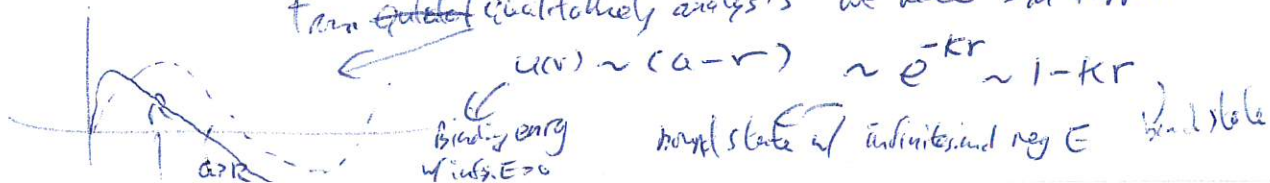 From Qualitatively analysis we have
u(r) ~ (a-r) ~ e^{-Kr} ~ 1-Kr
R Binding energ bound state w/ infinitesimal neg E bound state
a>R w/ infs. E>0